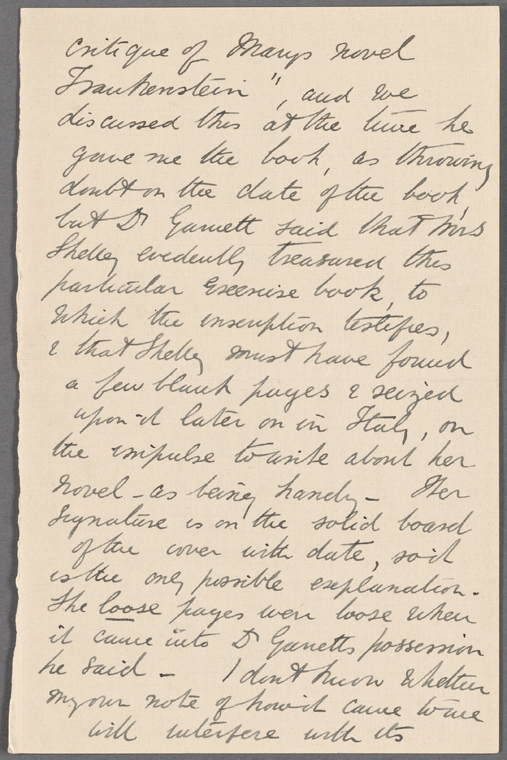 critique of Marys novel
Frankenstein", and we
discussed this at the time he
gave me the book, as throwing
doubt on the date of the book,
but Dr Garnett said that Mrs
Shelley evidently treasured this
particular Exercise book, to
which the inscription testifies,
& that Shelley must have found
a few blank pages & seized
upon it later on in Italy, on
the impulse to write about her
novel - as being handy - Her
signature is on the solid board
of the cover with date, so it
is the only possible explanation.
The loose pages were loose when
it came into Dr Garnetts possession
he said - I don't know whether
my own note of how it came to me
will interfere with its